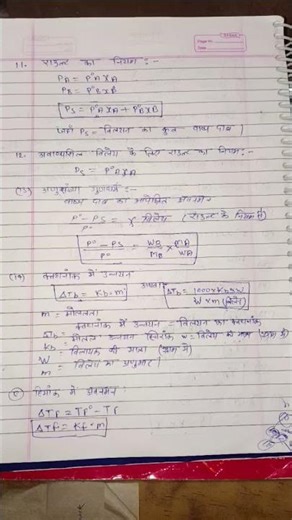 11. राउल्ट का नियम :-
PA = P°A XA
PB = P°B XB
PS = P°A XA + P°B XB
जहाँ PS = विलयन का कुल वाष्प दाब।
12. अवाष्पशील विलेय के लिए राउल्ट का नियम:-
PS = P°A XA
(13) अणुसंख्य गुणधर्म :-
वाष्प दाब का आपेक्षिक अवनमन
P° - PS / P° = X विलेय (राउल्ट के नियम से)
P° - PS / P° = WB / MB × MA / WA
(14) क्वथनांक में उन्नयन
ΔTb = Kb · m अथवा ΔTb = 1000 × Kb × w / W × m (विलेय)
m = मोललता
ΔTb = क्वथनांक में उन्नयन = विलयन का क्वथनांक
Kb = मोलल उन्नयन स्थिरांक w = विलेय की मात्रा (ग्राम में)
W = विलायक की मात्रा (ग्राम में)
m = विलेय का अणुभार।
हिमांक में अवनमन
ΔTf = Tf° - Tf
ΔTf = Kf · m